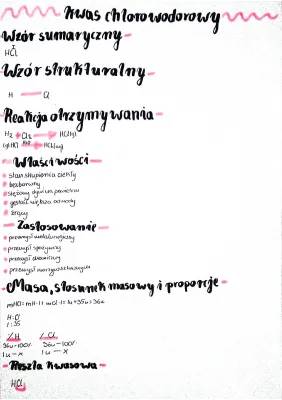 Kwas chlorowodorowy
Wzór sumaryczny
HCl
Wzór strukturalny
H — Cl
Reakcja otrzymywania
H₂ + Cl₂ → HCl(g)
(g)HCl → HCl(aq)
Właściwości
stan skupienia ciekły
bezbarwny
stężony dymi na powietrzu
gęstość większa od wody
żrący
Zastosowanie
przemysł metalurgiczny
przemysł spożywczy
przemysł
przemysł
Masa, stosunek masowy i proporcje
mHCl = mH·1 + mCl·1 = 1u + 35u = 36u
H:Cl
1:35
% H % Cl
36u - 100% 36u - 100%
1u - x 1u - x
Reszta kwasowa
HCl